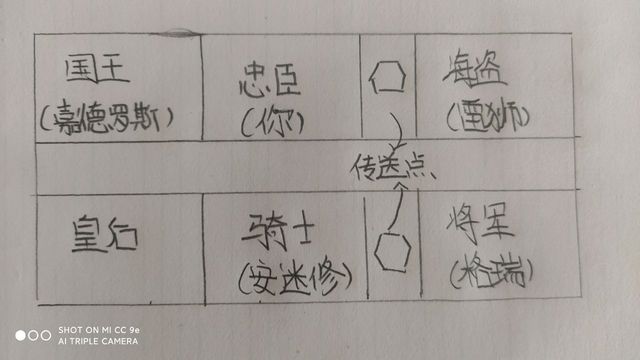 国王
(嘉德罗斯)
忠臣
(你)
海盗
(雷狮)
传送点、
皇后
骑士
(安迷修)
将军
(格瑞)
SHOT ON MI CC 9e
AI TRIPLE CAMERA